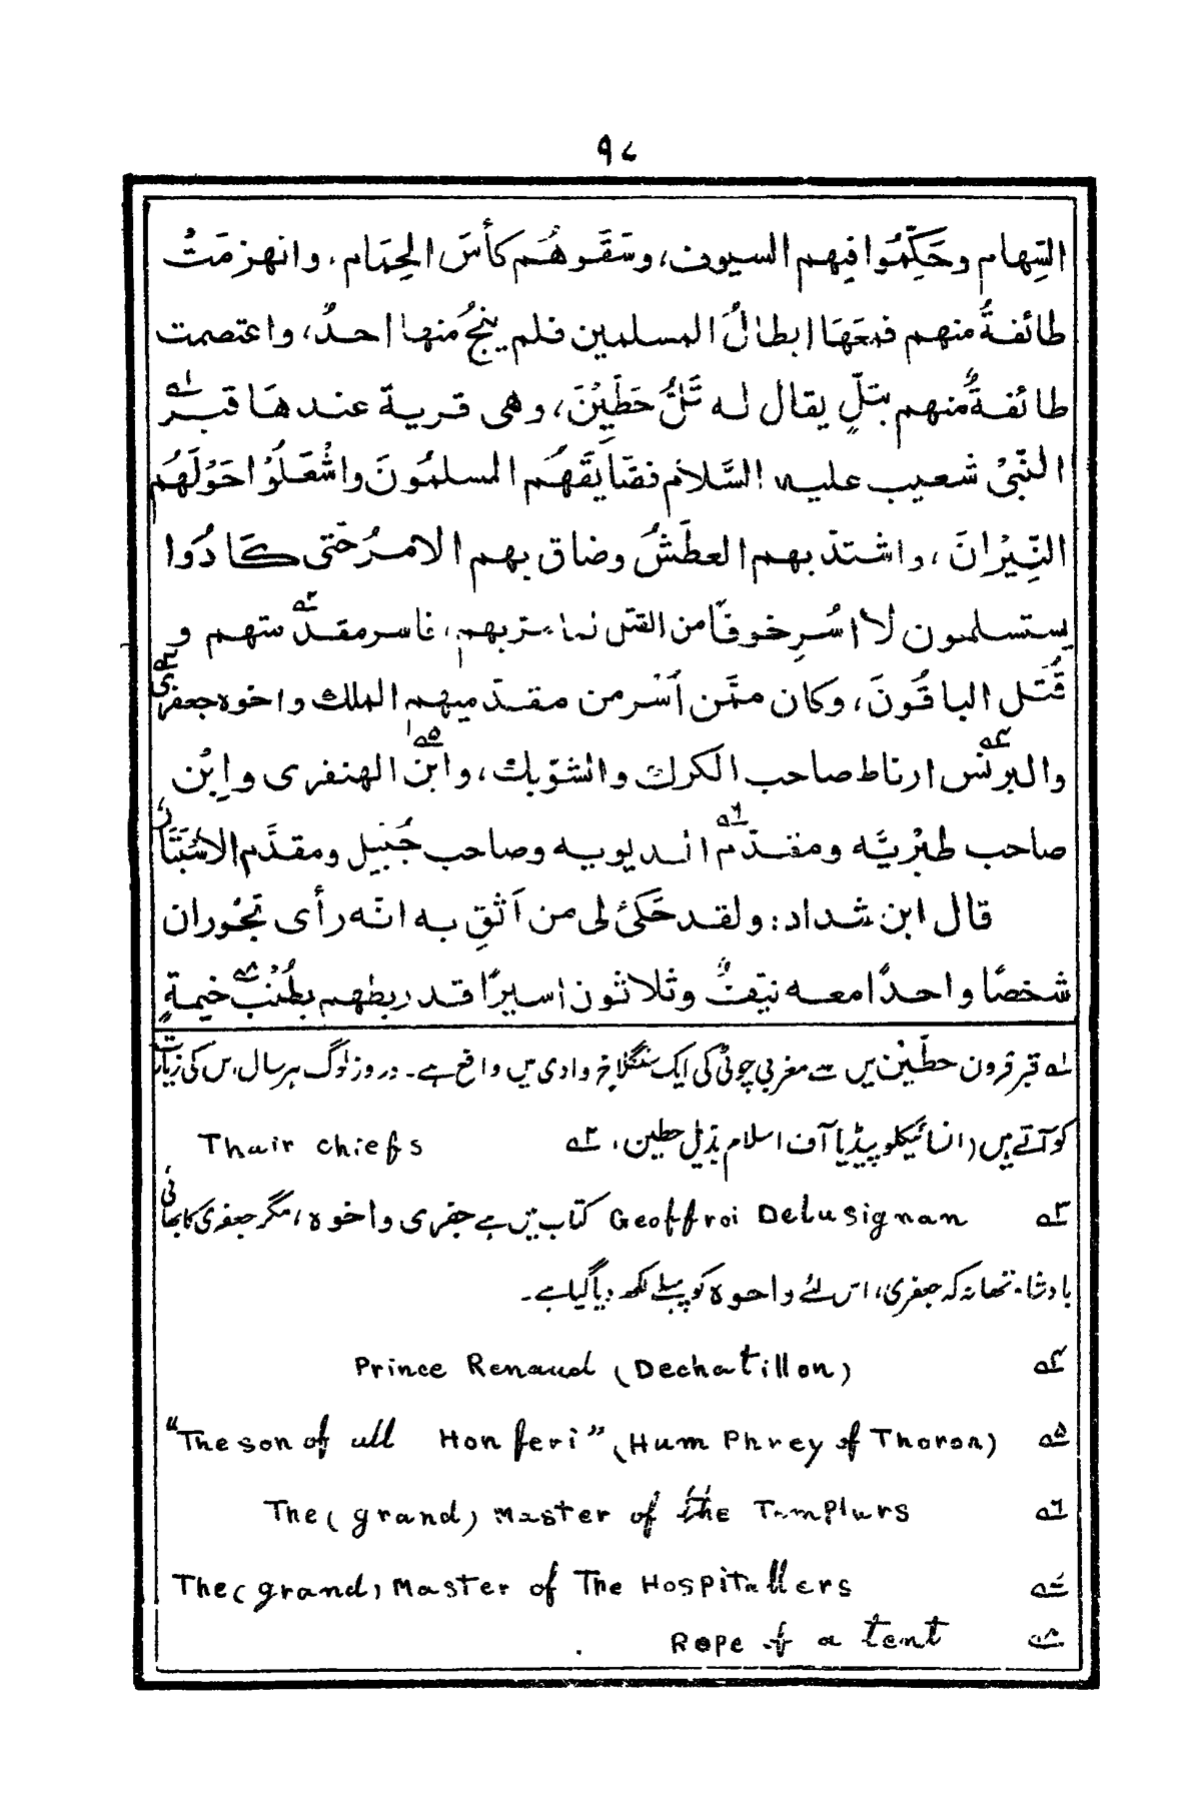 ۹۷
السِّهام وحَكَّمُوا فيهم السيوف، وسَقَوهُم كأسَ الحِمَام، وانهزمَتْ
طائفةُ منهم فتبعَهَا ابطالُ المسلمين فلم ينجُ منها احدٌ، واعتصمت
طائفةٌ منهم بتلٍّ يقال له تَلُّ حَطِّيْنَ، وهى قرية عندهَا قبرُ ۱ـه
النّبىْ شعيب عليه السَّلام فضَايَقَهُم المسلمُونَ واشْعَلُوْا حَوْلَهُم
النِّيْرَانَ، واشتدّ بهم العطَشُ وضاق بهم الامرُ حتّى كَادُوا
يستسلمون للاسْرِ خوفًا من القتل لما مرّ بهم، فاسر مقدّ۲ـهمتهم و
قُتَل الباقُونَ، وكان ممَّن اَسْر من مقدّميهم الملك واخوه جعفرى۳ـه
والبرنس۴ـه ارناط صاحب الكرك والشوبك، وابن۵ـه الهنفرى وابْن
صاحب طبْريَّه ومقدّم۶ـه الديويه وصاحب جُبيل ومقدَّم الاسْبَتَار۷ـه
قال ابن شداد: ولقد حَكىٰ لى من اَثقِ به انّه رأى بحَوران
شخصًا واحدًا معه نيّفٌ وثلاثون اسيرًا قد ربطهم بطُنْب۸ـه خيمةٍ
۱ـه قبر قرون حطّيْن میں سے مغربی چوٹی کی ایک سنگلاخ وادی میں واقع ہے۔ دروز لوگ ہر سال اس کی زیارت
کو آتے ہیں (انسائیکلوپیڈیا آف اسلام بذیل حطین، ۲ـه Thair chiefs
۳ـه Geoffroi Delusignan کتاب میں ہے جفری واخوه، مگر جعفری کا بھائی
بادشاہ تھا نہ کہ جعفری، اس لئے واخوہ کو پہلے لکھ دیا گیا ہے۔
۴ـه Prince Renaud (Dechatillon)
۵ـه "The son of all Honferi" (Hum Phrey of Thoron)
۶ـه The (grand) Master of the Templurs
۷ـه The (grand) Master of The Hospitallers
۸ـه Rope of a tent